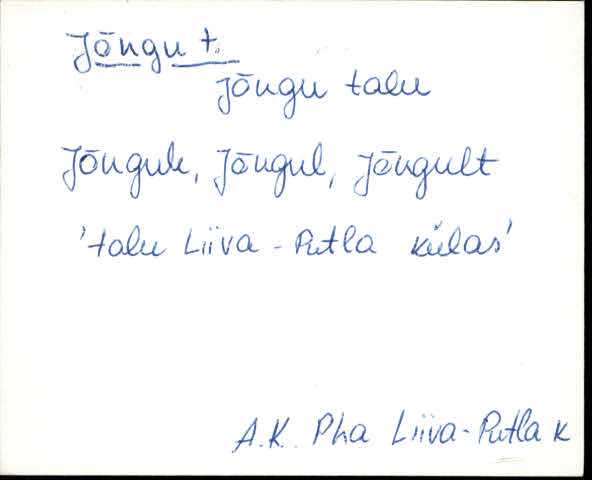 Jōngu t.
jōngu talu
Jōngule, Jōngul, Jōngult
'talu Liiva-Putla külas'
A.K. Pha Liiva-Putla k